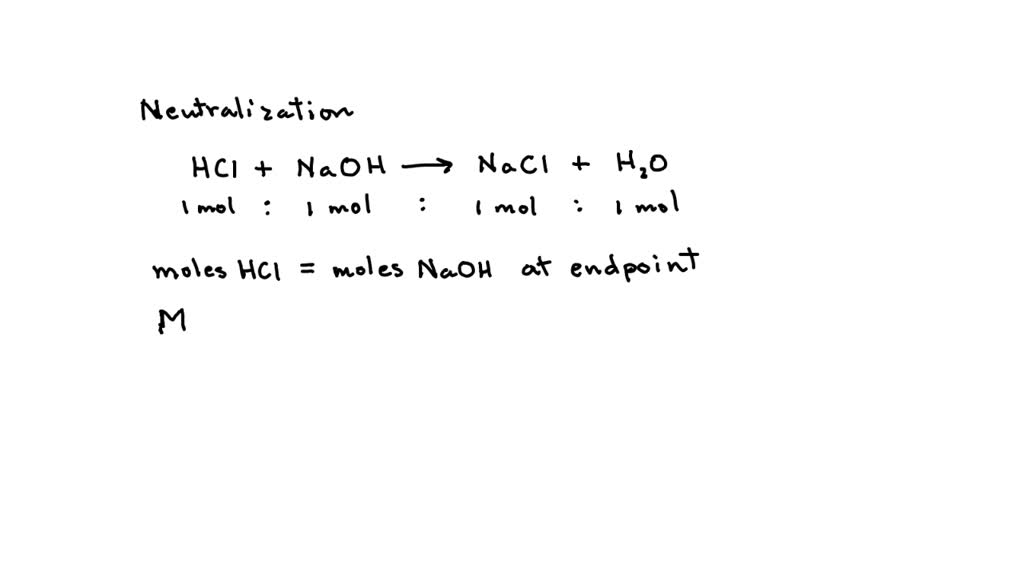 Neutralization
HCl + NaOH → NaCl + H₂O
1 mol : 1 mol : 1 mol : 1 mol
moles HCl = moles NaOH at endpoint
M